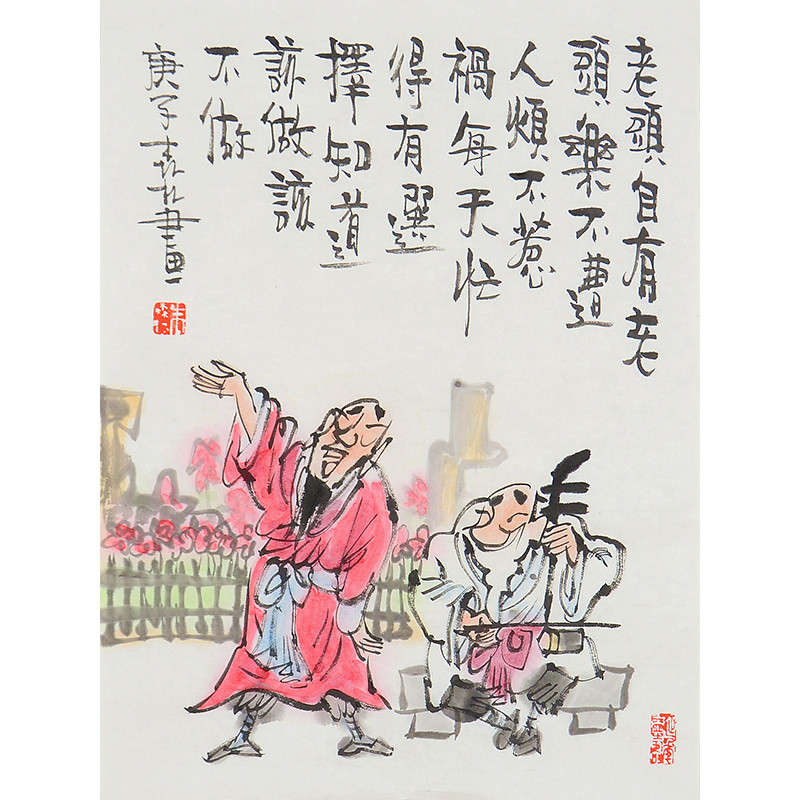 老頭自有老
頭樂不遭
人煩不惹
禍每天忙
得有選
擇知道
該做該
不做
庚子春於書畫